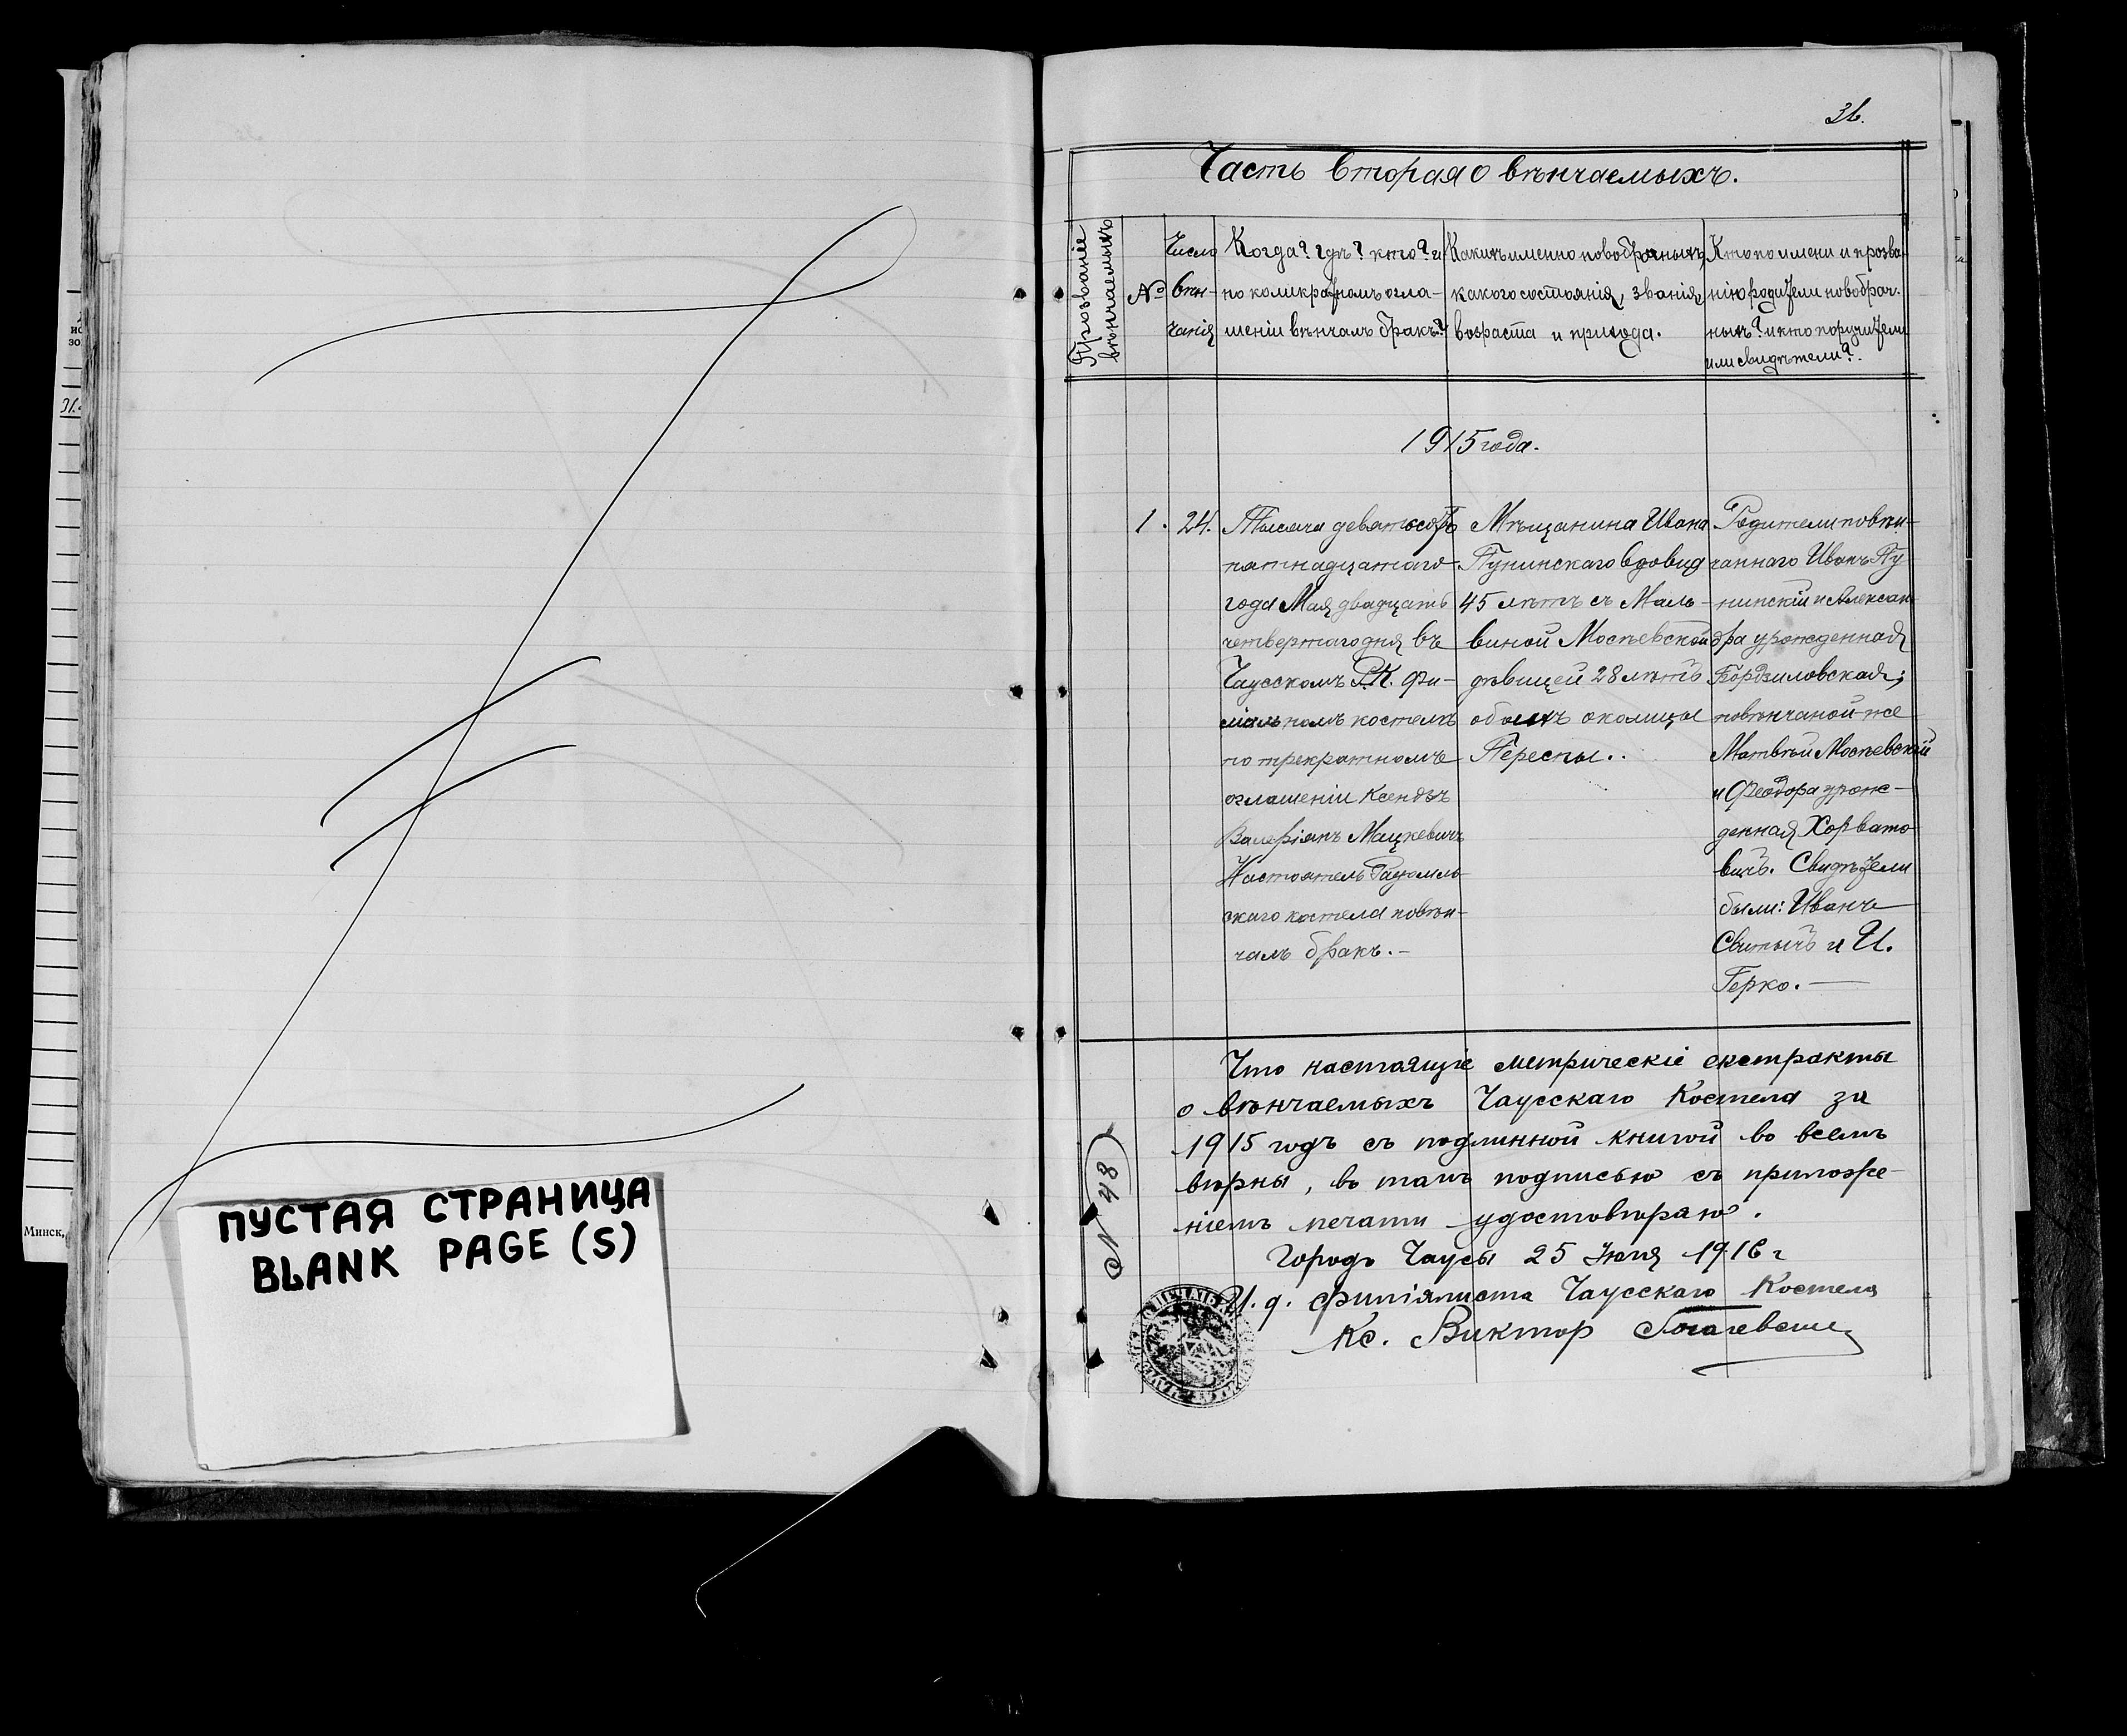 ПУСТАЯ СТРАНИЦА
BLANK PAGE (S)
Минск,
31.
Часть вторая о вѣнчаемыхъ.
Прозваніе
вѣнчаемыхъ
№
Число
вѣн-
чанія
Когда? гдѣ? кто? и
по коликратномъ огла-
шеніи вѣнчалъ бракъ?
Какихъ именно новобрачныхъ,
какого состоянія, званія,
возраста и прихода.
Кто по имени и прозва-
нію родители новобрач-
ныхъ? и кто поручители
или свидѣтели?
1915 года.
1.
24.
Тысяча девятьсотъ
пятнадцатаго
года Мая двадцать
четвертаго дня въ
Чаусскомъ Р.К. фи-
ліальномъ костелѣ
по трекратномъ
оглашеніи Ксендзъ
Валеріянъ Мацкевичъ
Настоятель Радомль-
скаго костела повѣн-
чалъ бракъ.-
Мѣщанина Ивана
Пунинскаго вдовца
45 лѣтъ съ Маль-
виной Мосѣевской
дѣвицей 28 лѣтъ
обоихъ околицы
Переспы..
Родители повѣн-
чаннаго Иванъ Пу
нинскій и Алексан-
дра урожденная
Бордзиловская;
повѣнчаной-же
Матвѣй Мосѣевскій
и Феодора урож-
денная Хорвато-
вичъ. Свидѣтели
были: Иванъ
Свитычъ и И.
Герко.
Что настоящіе метрическіе екстракты
о вѣнчаемыхъ Чаусскаго Костела за
1915 годъ съ подлинной книгой во всемъ
вѣрны, въ томъ подписью съ приложе-
ніемъ печати удостовѣряю.
Городъ Чаусы 25 Іюня 1916 г
И. д. филіялиста Чаусскаго Костела
Кс. Виктор
N 48